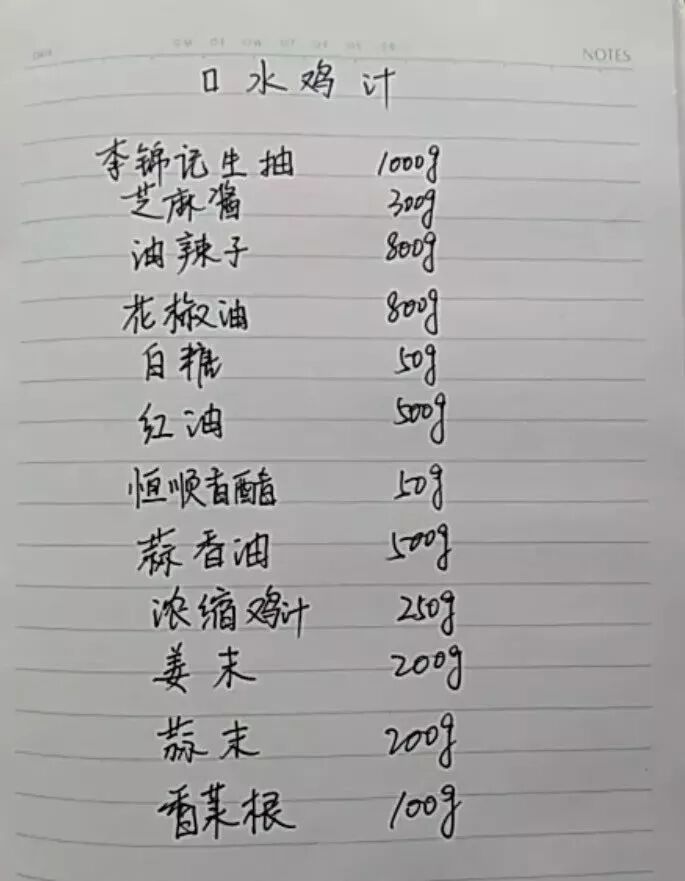 NOTES
口水鸡汁
李锦记生抽 1000g
芝麻酱 300g
油辣子 800g
花椒油 800g
白糖 50g
红油 500g
恒顺香醋 50g
蒜香油 500g
浓缩鸡汁 250g
姜末 200g
蒜末 200g
香菜根 100g